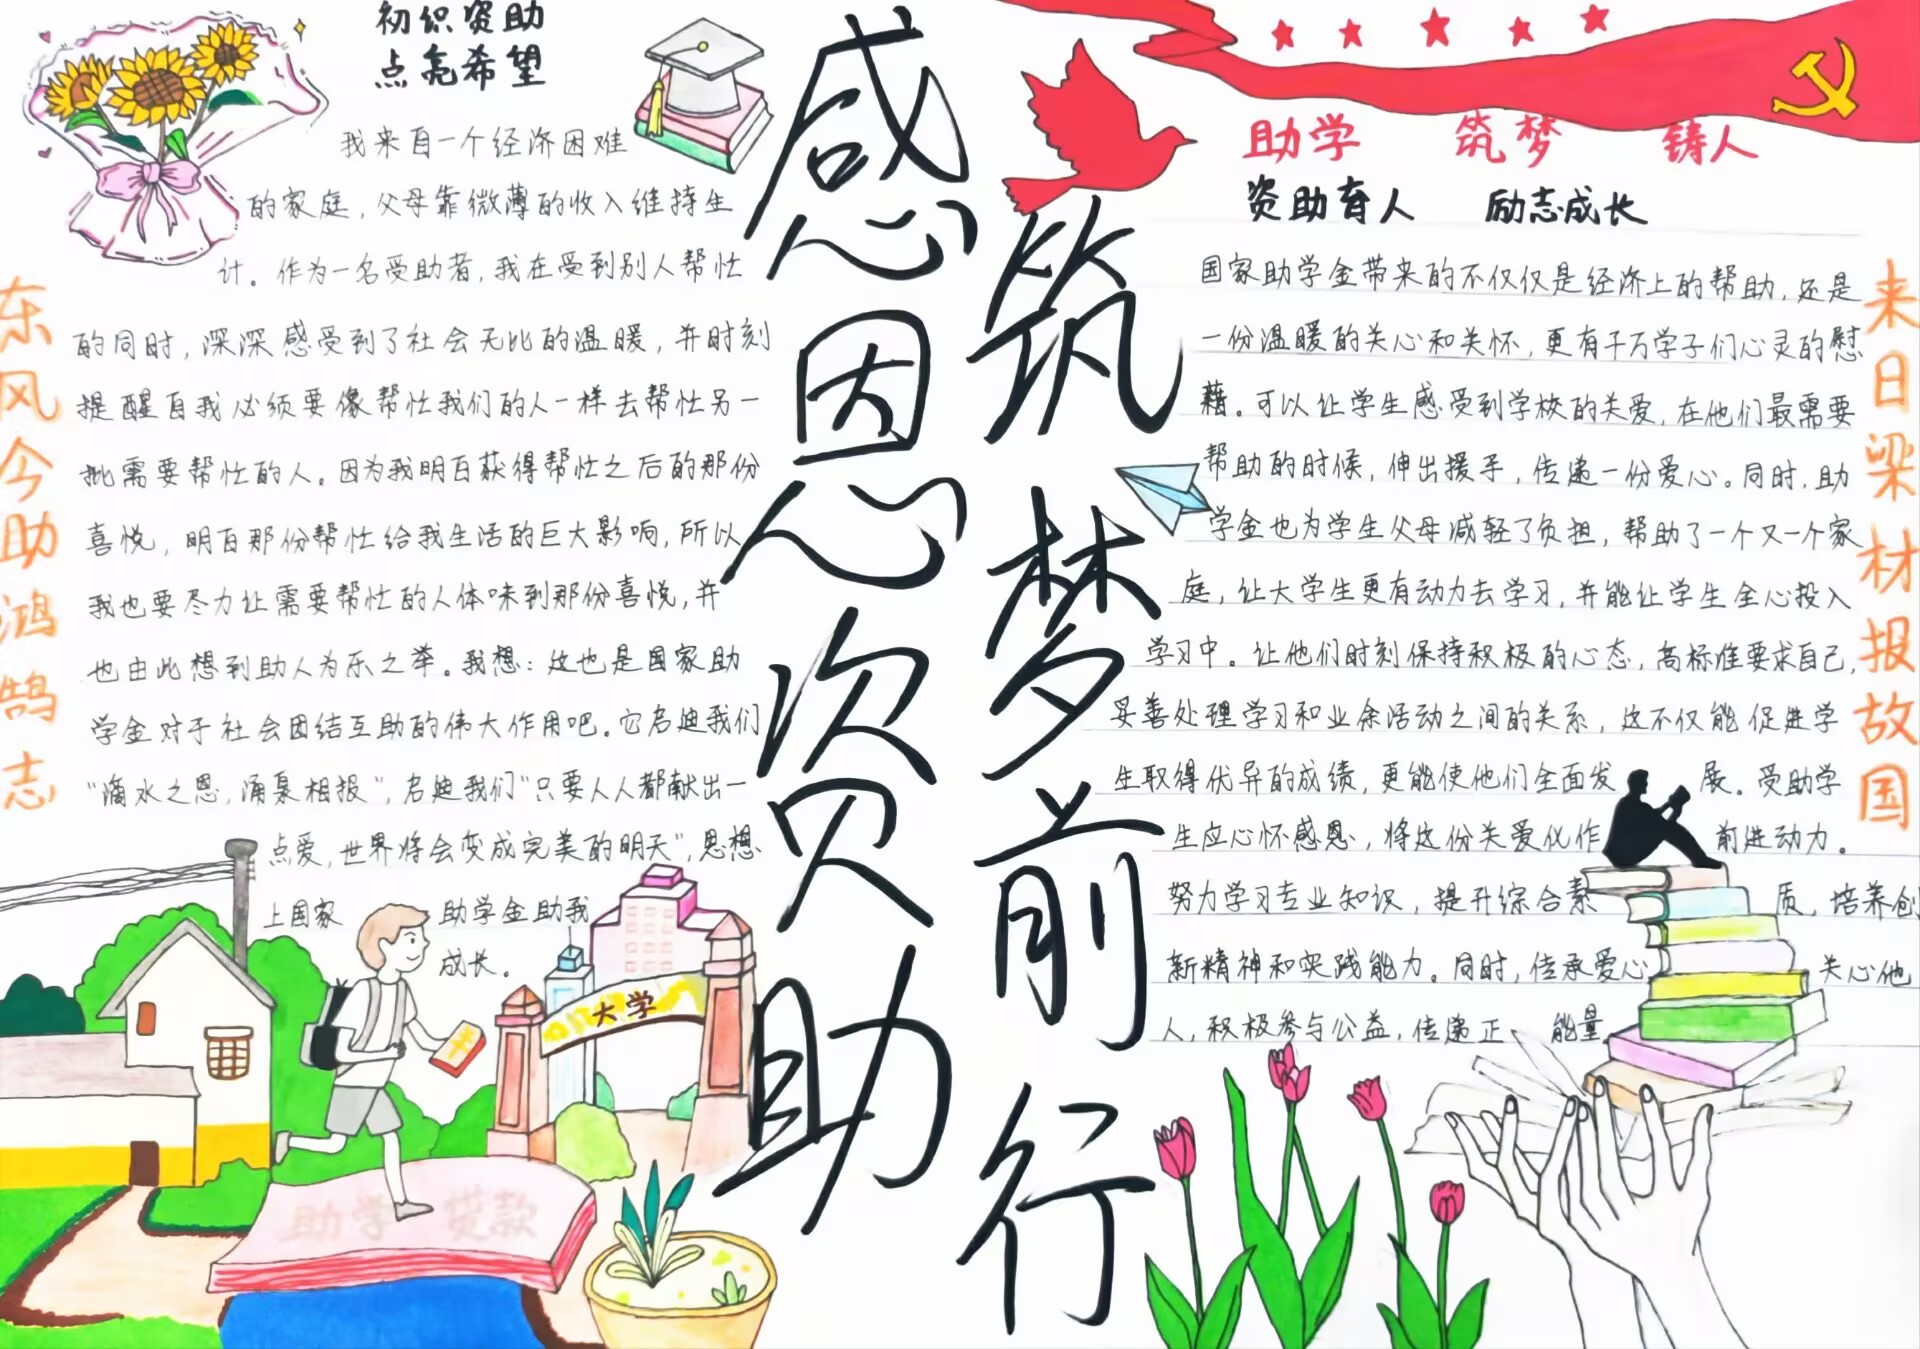 初识资助
点亮希望
我来自一个经济困难
的家庭，父母靠微薄的收入维持生
计。作为一名受助者，我在受到别人帮忙
的同时，深深感受到了社会无比的温暖，并时刻
提醒自我必须要像帮忙我们的人一样去帮忙另一
批需要帮忙的人。因为我明白获得帮忙之后的那份
喜悦，明白那份帮忙给我生活的巨大影响，所以
我也要尽力让需要帮忙的人体味到那份喜悦，并
也由此想到助人为乐之举。我想：这也是国家助
学金对于社会团结互助的伟大作用吧。它启迪我们
“滴水之恩，涌泉相报”，启迪我们“只要人人都献出一
点爱，世界将会变成完美的明天”，思想
上国家 助学金助我
成长。
东风今助鸿鹄志
大学
助学 贷款
感恩资助
筑梦前行
助学 筑梦 铸人
资助育人 励志成长
国家助学金带来的不仅仅是经济上的帮助，还是
一份温暖的关心和关怀，更有千万学子们心灵的慰
藉。可以让学生感受到学校的关爱，在他们最需要
帮助的时候，伸出援手，传递一份爱心。同时，助
学金也为学生父母减轻了负担，帮助了一个又一个家
庭，让大学生更有动力去学习，并能让学生全心投入
学习中。让他们时刻保持积极的心态，高标准要求自己，
妥善处理学习和业余活动之间的关系，这不仅能促进学
生取得优异的成绩，更能使他们全面发 展。受助学
生应心怀感恩，将这份关爱化作 前进动力。
努力学习专业知识，提升综合素 质，培养创
新精神和实践能力。同时，传承爱心 关心他
人，积极参与公益，传递正 能量
来日梁材报故国